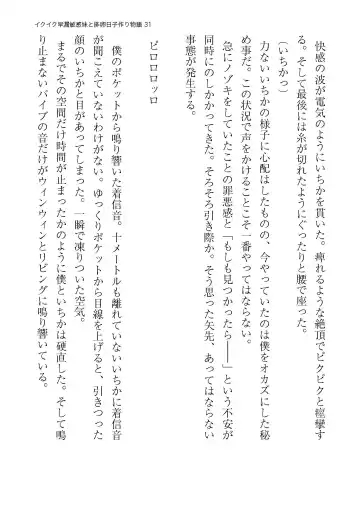 イクイク早漏敏感妹と排卵日子作り物語 31
快感の波が電気のようにいちかを貫いた。痺れるような絶頂でビクビクと痙攣す
る。そして最後には糸が切れたようにぐったりと腰で座った。
（いちかっ）
力ないいちかの様子に心配はしたものの、今やっていたのは僕をオカズにした秘
め事だ。この状況で声をかけることこそ一番やってはならない。
急にノゾキをしていたことの罪悪感と「もしも見つかったら――」という不安が
同時にのしかかってきた。そろそろ引き際か。そう思った矢先、あってはならない
事態が発生する。
ピロロロッロ
僕のポケットから鳴り響いた着信音。十メートルも離れていないいちかに着信音
が聞こえていないわけがない。ゆっくりポケットから目線を上げると、引きつった
顔のいちかと目があってしまった。一瞬で凍りついた空気。
まるでその空間だけ時間が止まったかのように僕といちかは硬直した。そして鳴
り止まないバイブの音だけがウィンウィンとリビングに鳴り響いている。